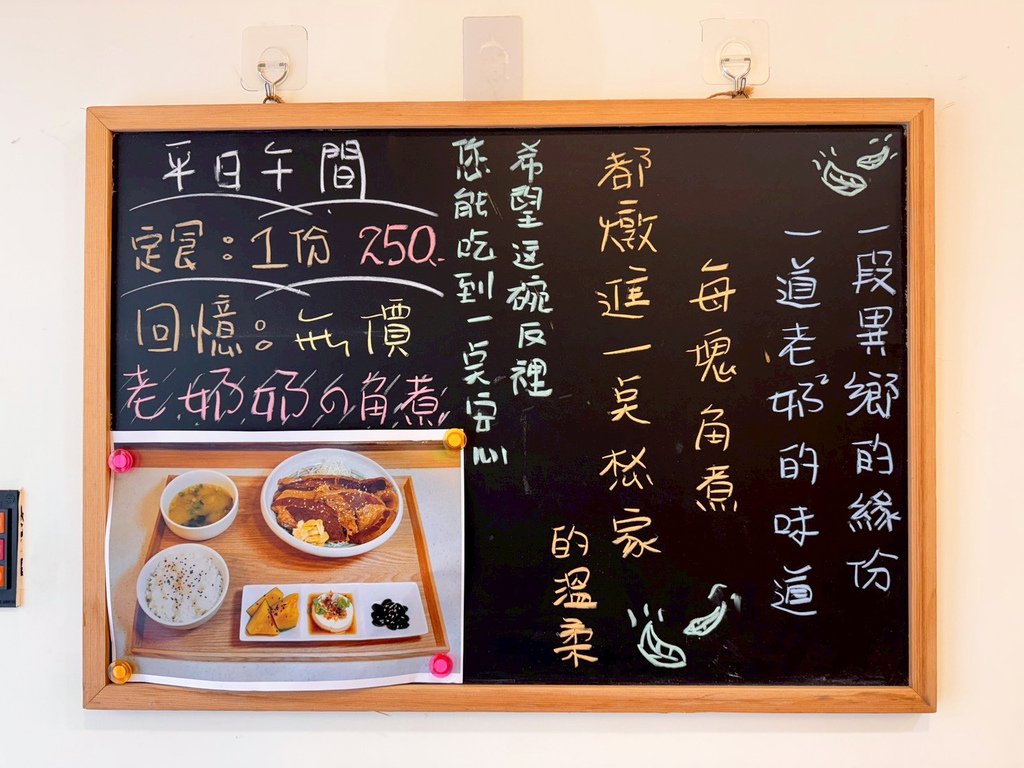 一段異鄉的緣份
一道老奶²的味道
每塊角煮
都燉進一奌松家
的溫柔
希望这碗反裡
您能吃到一奌安心
平日午間
定食：1份 250.
回憶：無價
老奶奶の角煮